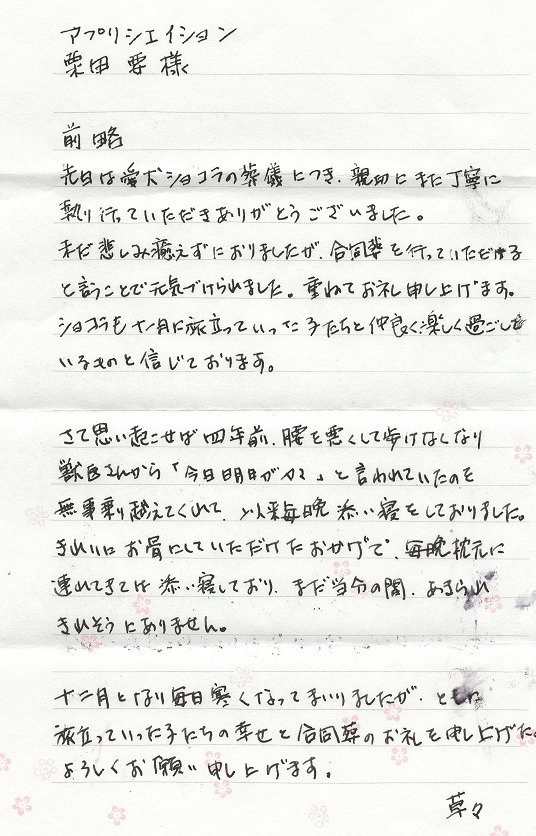 アプリシエイション
栗田 要 様
前略
先日は愛犬ショコラの葬儀につき、親切にまた丁寧に
執り行っていただきありがとうございました。
まだ悲しみ癒えずにおりましたが、合同葬を行っていただける
と言うことで元気づけられました。重ねてお礼申し上げます。
ショコラも十一月に旅立っていった子たちと仲良く、楽しく過ごして
いるものと信じております。
さて思い起こせば四年前、腰を悪くして歩けなくなり
獣医さんから「今日明日がヤマ」と言われていたのを
無事乗り越えてくれて、以来毎晩添い寝をしておりました。
きれいにお骨にしていただけたおかげで、毎晩枕元に
連れてきては添い寝しており、まだ当分の間、あきられ
きれそうにありません。
十二月となり毎日寒くなってまいりましたが、ともに
旅立っていった子たちの幸せと合同葬のお礼を申し上げた
よろしくお願い申し上げます。
草々